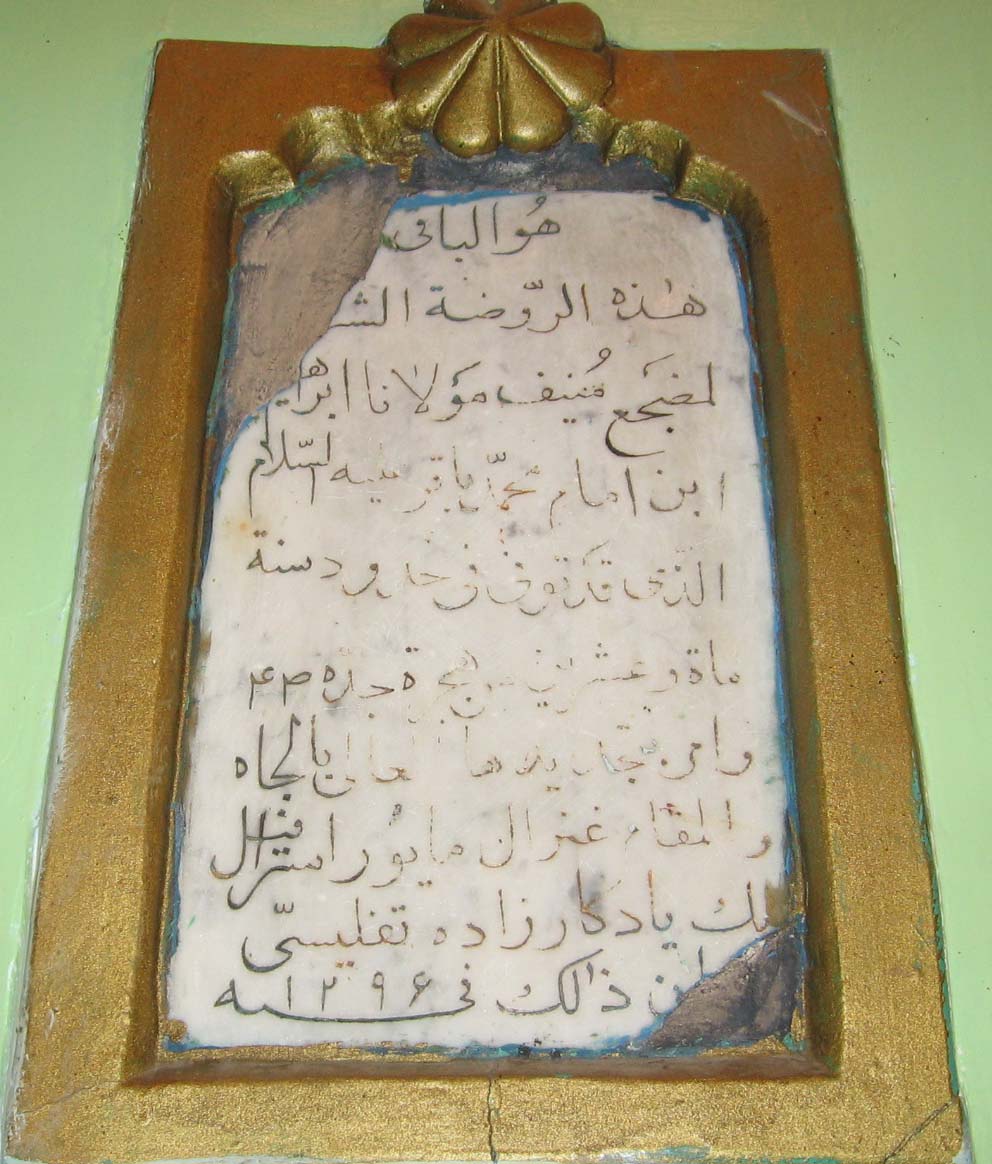 هُوالباقی
هٰذه الرّوضة الشـ
لمضَجع مُنیف مَوَلانا ابراهیـ
ابن امام محمّد باقر علیه السّلام
الذّی قدَ توفی فی حدود سنة
ماة و عشرین من هجرة جدّه ص
وامن بتجدیدها العالی بالجاه
والمقام غنرال مایوُر اسرافیل
بك یادكار زاده تفلیسیّ
ذٰلك فی سنه ۱۲۹۶